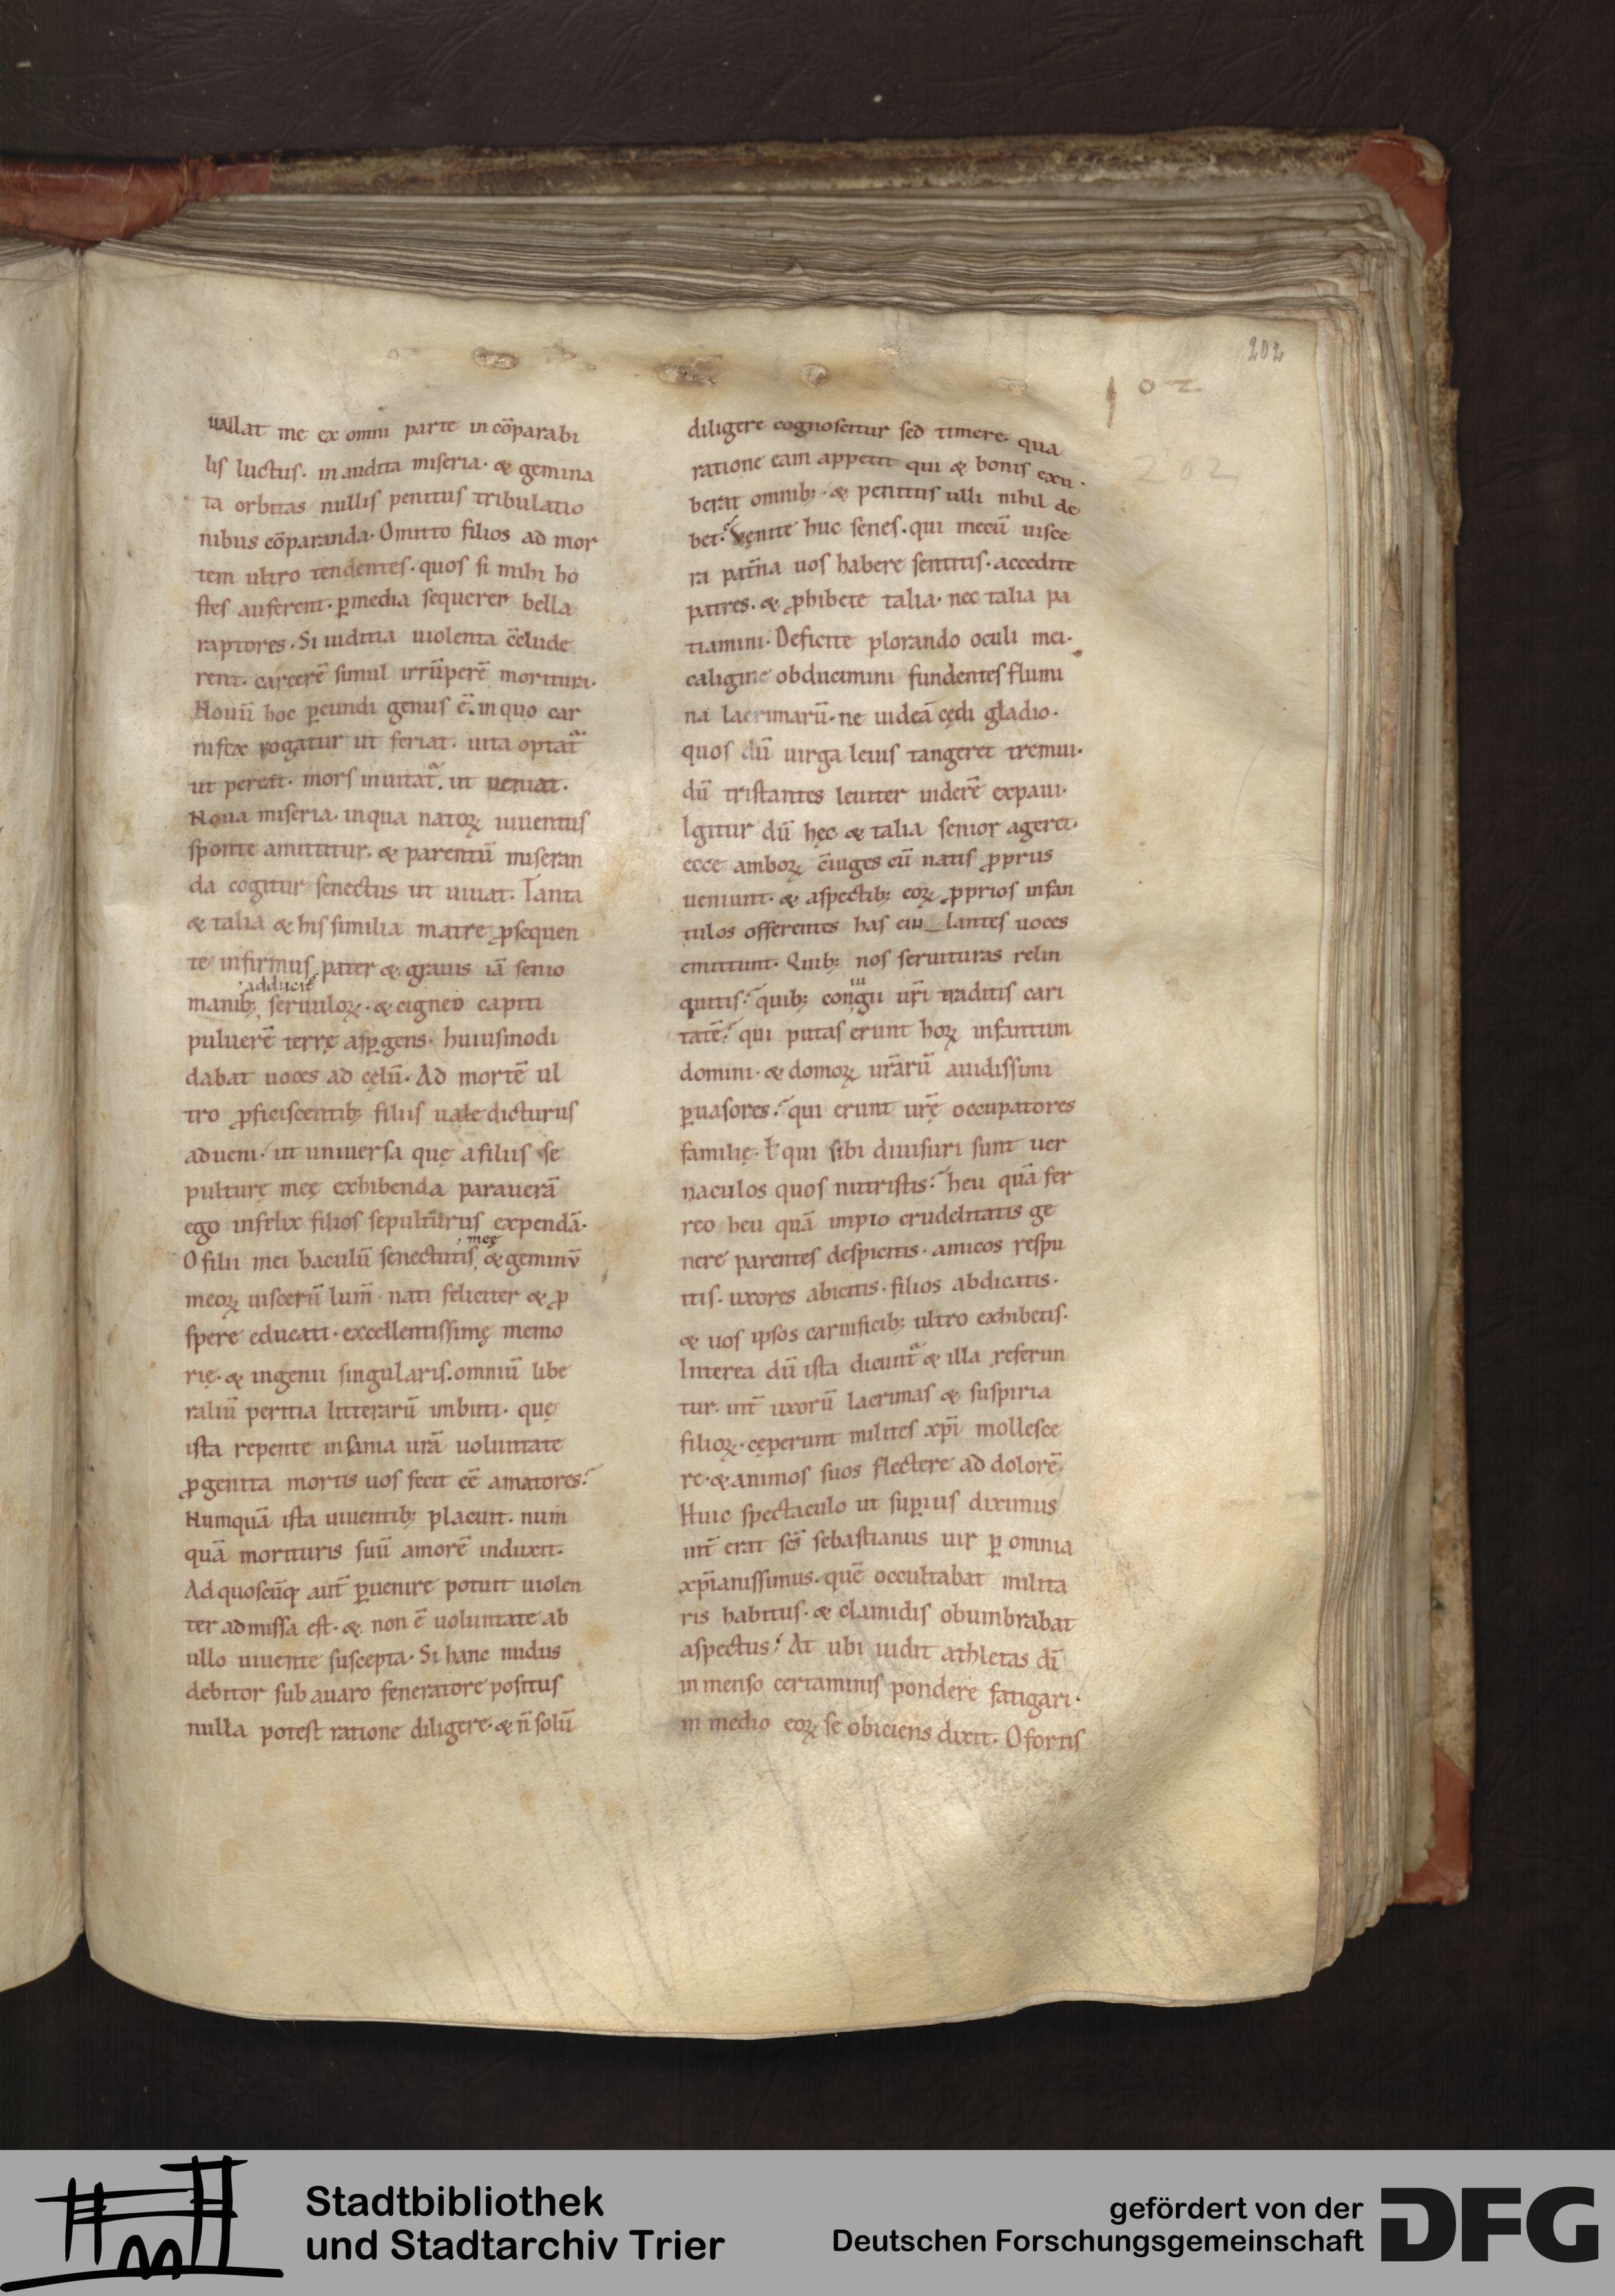 202
102
202
uallat me ex omni parte incōparabi
lis luctus. inaudita miseria. & gemina
ta orbitas nullis penitus tribulatio
nibus cōparanda. Omitto filios ad mor
tem ultro tendentes. quos si mihi ho
stes auferent. ꝑmedia sequerer bella
raptores. Si iuditia uiolenta c̄clude
rent. carcerē simul irrūperē moriturus.
Nouū hoc ꝑeundi genus ē. inquo car
nifex rogatur ut feriat. uita optat᷑
ut pereat. mors inuitat᷑. ut ueniat.
Noua miseria. inqua natoꝝ iuuentus
sponte amittitur. & parentū miseran
da cogitur senectus ut uiuat. Tanta
& talia & his similia matre ꝓsequen
te infirmus pater & grauis iā senio
adducit᷑
manib; seruuloꝝ. & cigneo capiti
puluerē terrę asꝑgens. huiusmodi
dabat uoces ad cęlū. Ad mortē ul
tro ꝓficiscentib; filiis uale dicturus
adueni. ut uniuersa quę a filiis se
pulturę meę exhibenda parauerā
ego infelix filios sepulturus expendā.
O filii mei baculū senectutis meę & geminū
meoꝝ uiscerū lum̄. nati feliciter & ꝓ
spere educati. excellentissimę memo
rię. & ingenii singularis. omniū libe
raliū peritia litterarū imbuti. quę
ista repente insania urā uoluntate
ꝓgenita mortis uos fecit eē amatores?
Numquā ista uiuentib; placuit. num
quā morituris suū amorē induxit.
Ad quoscūq; aut̄ ꝑuenire potuit uiolen
ter admissa est. & non ē uoluntate ab
ullo uiuente suscepta. Si hanc nudus
debitor sub auaro feneratore positus
nulla potest ratione diligere. & n̄ solū
diligere cognoscitur sed timere. qua
ratione eam appetit qui & bonis exu
berat omnib; & penitus ulli nihil de
bet? Venite huc senes. qui mecū uisce
ra pat̄na uos habere sentitis. accedite
patres. & ꝓhibete talia. nec talia pa
tiamini. Deficite plorando oculi mei.
caligine obducimini fundentes flumi
na lacrimarū. ne uideā cędi gladio.
quos dū uirga leuis tangeret tremui.
dū tristantes leuiter uiderē expaui.
Igitur dū hęc & talia senior ageret.
ecce amboꝝ c̄iuges cū natis ꝓprus
ueniunt. & aspectib; eoꝝ ꝓprios infan
tulos offerentes has eiu lantes uoces
emittunt. Quib; nos seruituras relin
quitis? quib; coniugii ur̄i traditis cari
tatē? qui putas erunt hoꝝ infantum
domini. & domoꝝ ur̄arū auidissimi
ꝑuasores? qui erunt ur̄ę occupatores
familię. ł qui sibi diuisuri sunt uer
naculos quos nutristis? heu quā fer
reo heu quā impio crudelitatis ge
nere parentes despicitis. amicos respu
itis. uxores abicitis. filios abdicatis.
& uos ipsos carnificib; ultro exhibetis.
Interea dū ista dicunt᷑ & illa referun
tur. int̄ uxorū lacrimas & suspiria
filioꝝ. cęperunt milites xp̄i mollesce
re. & animos suos flectere ad dolorē.
Huic spectaculo ut suꝑius diximus
int̄ erat sc̄s sebastianus uir ꝑ omnia
xp̄ianissimus. quē occultabat milita
ris habitus. & clamidis obumbrabat
aspectus? At ubi uidit athletas dī
inmenso certaminis pondere fatigari.
in medio eoꝝ se obiciens dixit. O fortis
Stadtbibliothek
und Stadtarchiv Trier
gefördert von der
Deutschen Forschungsgemeinschaft
DFG